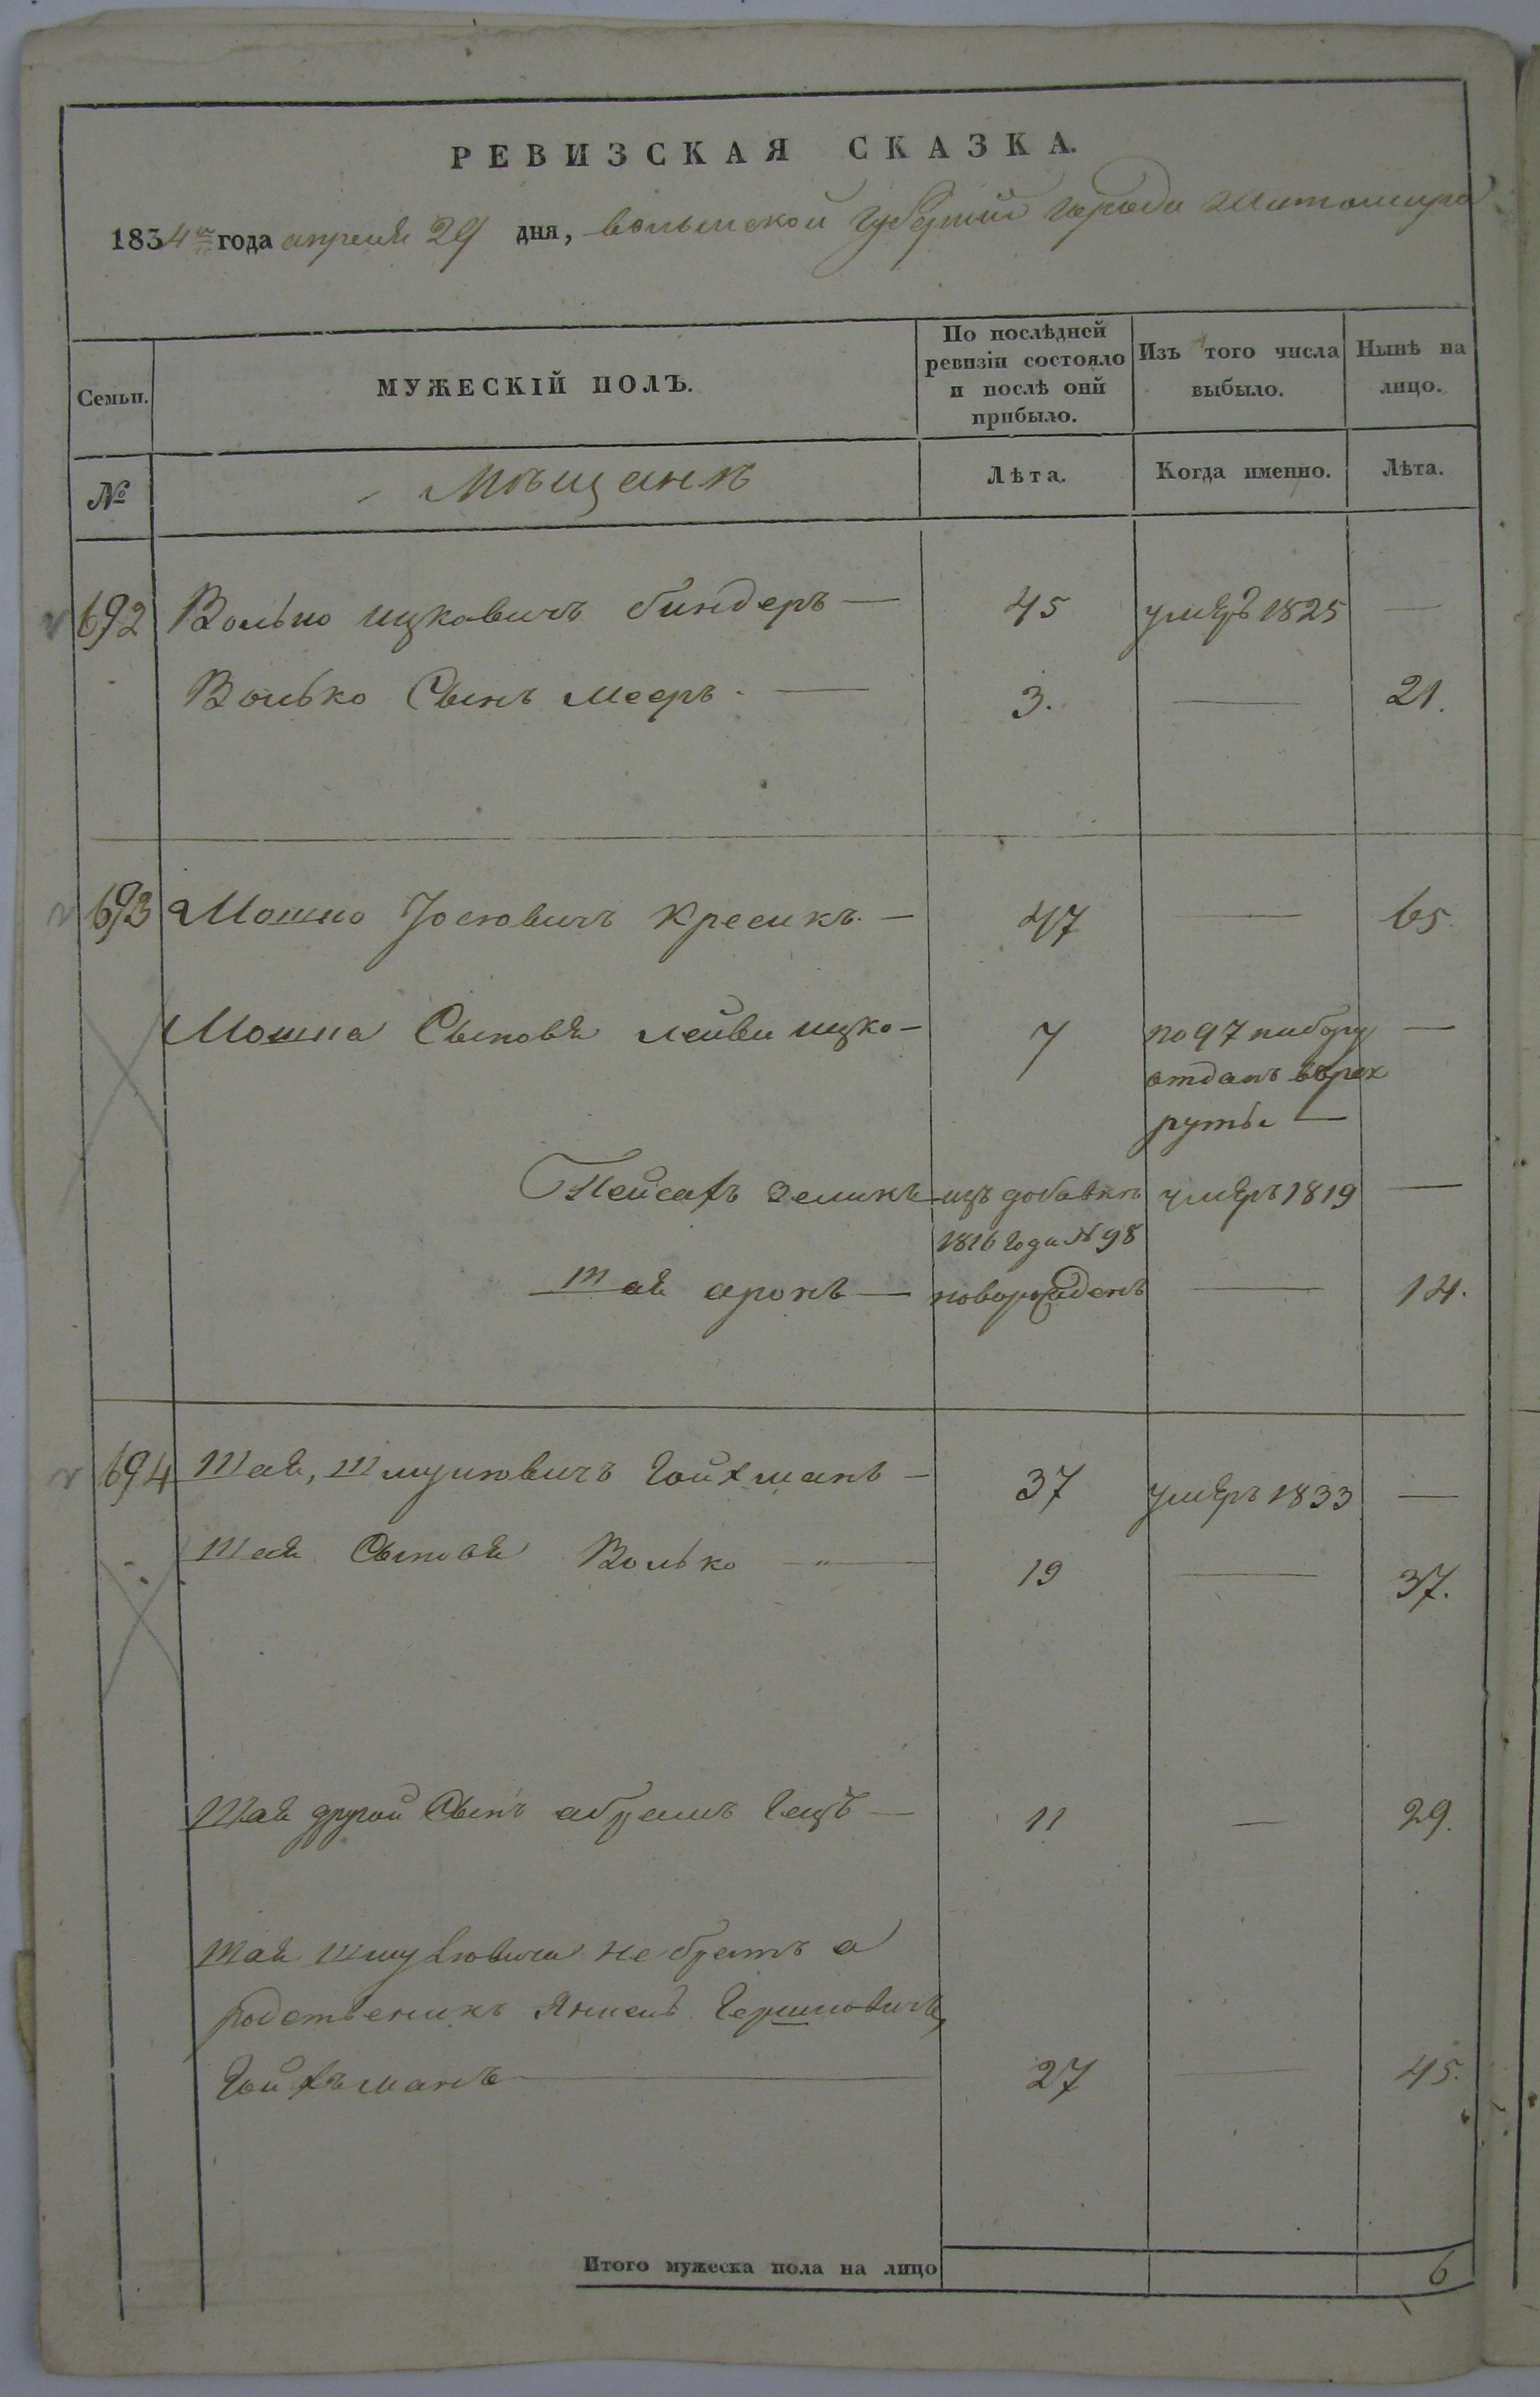 РЕВИЗСКАЯ СКАЗКА.
1834го года апреля 29 дня, волынской губерніи города Житомира
Семьи.
МУЖЕСКІЙ ПОЛЪ.
По послѣдней ревизіи состояло и послѣ оной прибыло.
Изъ того числа выбыло.
Нынѣ на лицо.
№
Мѣщанъ
Лѣта.
Когда именно.
Лѣта.
692 Волько ицковичъ биндеръ — 45 умеръ 1825 —
Волько Сынъ мееръ — 3. — 21.
693 Мошко Йосювичъ Кресикъ — 47 — 65
Мошка Сыновя лейви ицко — 7 по 97 набору —
отданъ въ рек
руты —
Пейсахъ зеликъ изъ добавки умеръ 1819 —
1816 года № 98
шая аронъ — новорожденъ — 14.
694 Шая, Шмулювичъ гойхманъ — 37 умеръ 1833 —
Шая Сыновя Волько — 19 — 37.
Шая другой Сынъ абрамъ герцъ — 11 — 29.
Шая шмулювича не братъ а
родственикъ Янкель Гершковичъ
Гойхъманъ — 27 — 45.
Итого мужеска пола на лицо 6